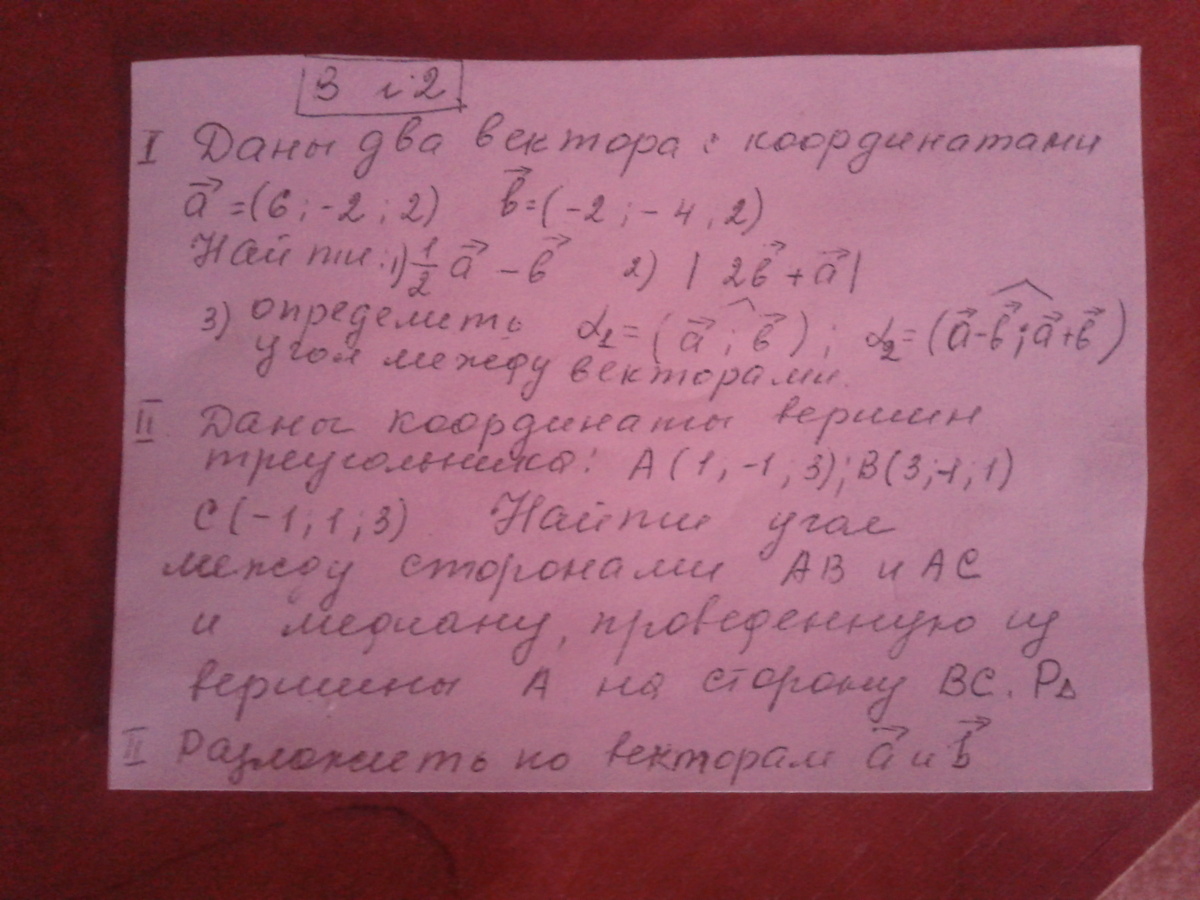 В и 2
I Даны два вектора с координатами
a⃗ =(6; -2; 2) b⃗=(-2; -4; 2)
Найти: 1) 1/2 a⃗ - b⃗ 2) | 2b⃗ + a⃗ |
3) определить α₁=(a⃗ ; b⃗) ; α₂=(a⃗-b⃗; a⃗+b⃗)
угол между векторами.
II Даны координаты вершин
треугольника: A(1; -1; 3); B(3; -1; 1)
C(-1; 1; 3) Найти угол
между сторонами AB и AC
и медиану, проведенную из
вершины A на сторону BC. P∆
II Разложить по векторам a⃗ и b⃗